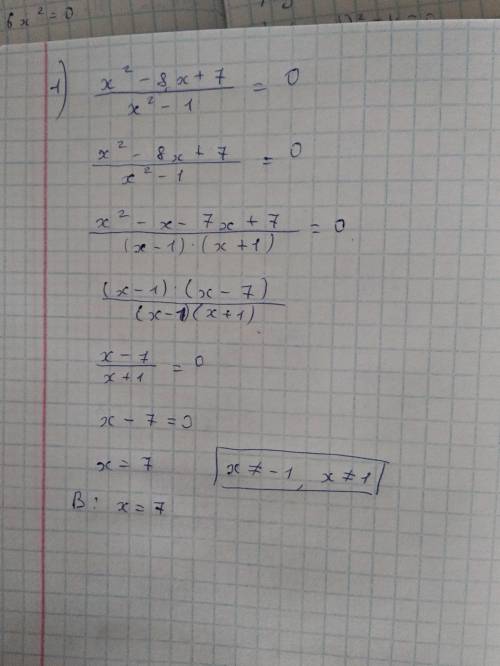 6x² = 0
1) (x² - 8x + 7)/(x² - 1) = 0
(x² - 8x + 7)/(x² - 1) = 0
(x² - x - 7x + 7)/((x-1)·(x+1)) = 0
((x-1)·(x-7))/((x-1)(x+1))
(x-7)/(x+1) = 0
x - 7 = 0
x = 7
x ≠ -1, x ≠ 1
В: x = 7